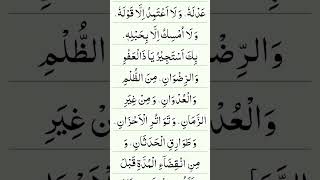 عَدْلَهُ. وَلَا أَعْتَمِدُ إِلَّا قَوْلَهُ.
وَلَا أُمْسِكُ إِلَّا بِحَبْلِهِ.
بِكَ أَسْتَجِيرُ يَا ذَا الْعَفْوِ
وَالرِّضْوَانِ. مِنَ الظُّلْمِ
وَالْعُدْوَانِ. وَمِنْ غِيَرِ
الزَّمَانِ. وَتَوَاتُرِ الْأَحْزَانِ.
وَطَوَارِقِ الْحَدَثَانِ. وَ
مِنِ انْقِضَاءِ الْمُدَّةِ قَبْلَ